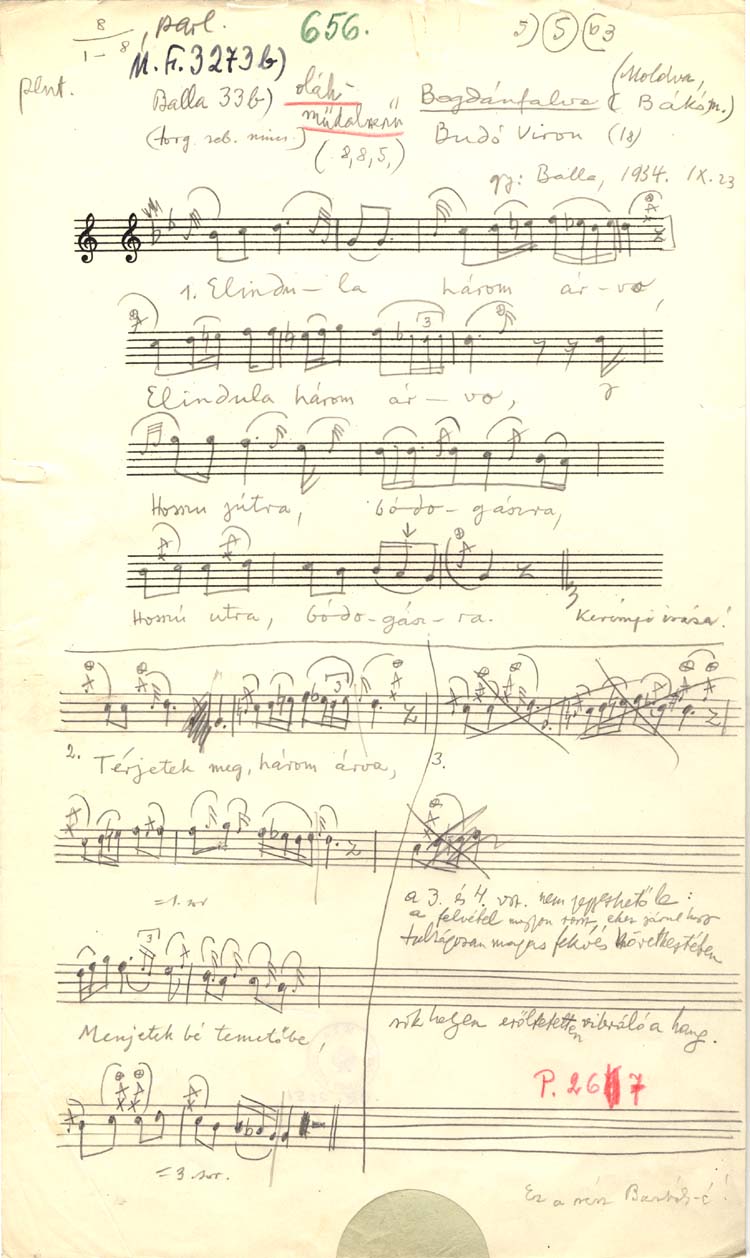 8 / 1–8, parl. 656. 5) (5) (b3
M.F. 3273b)
pent. Balla 33b) oláh- Bogdánfalva (Moldva,
műdalszerű Bákó m.)
(forg. seb. nincs.) (8,8,5,) Budó Viron (18)
gy: Balla, 1934. IX. 23
1. Elindu – la három ár – vo,
Elindula három ár – vo,
Hosszu jútra, bódo – gászra,
Hosszú utra, bódo – gász – ra. Kerényi írása!
2. Térjetek meg, három árva, 3.
= 1. sor
a 3. és 4. vsz. nem jegyezhető le:
a felvétel nagyon rossz,
tulságosan magas fekvés következtében
Menjetek bé temetőbe,
sok helyen erőltetetten vibráló a hang.
P. 267
= 3. sor.
Ez a rész Bartók-é!